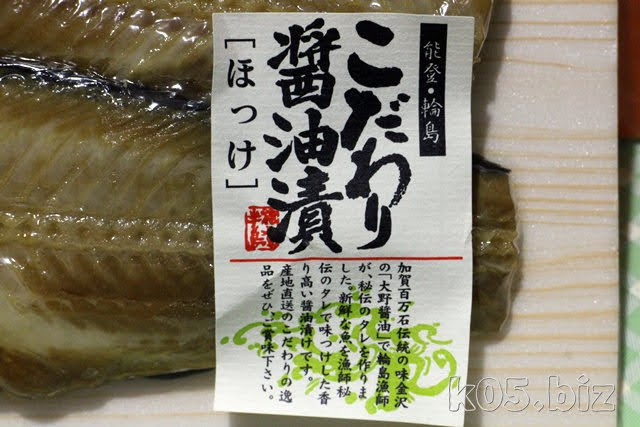 能登・輪島
こだわり
醤油漬
［ほっけ］
加賀百万石伝統の味金沢
の「大野醤油」で輪島漁師
が、秘伝のタレを作りま
した。新鮮な魚を漁師秘
伝のタレで味つけした香
り高い醤油漬けです。
産地直送のこだわりの逸
品をぜひ、ご賞味下さい。
k05.biz